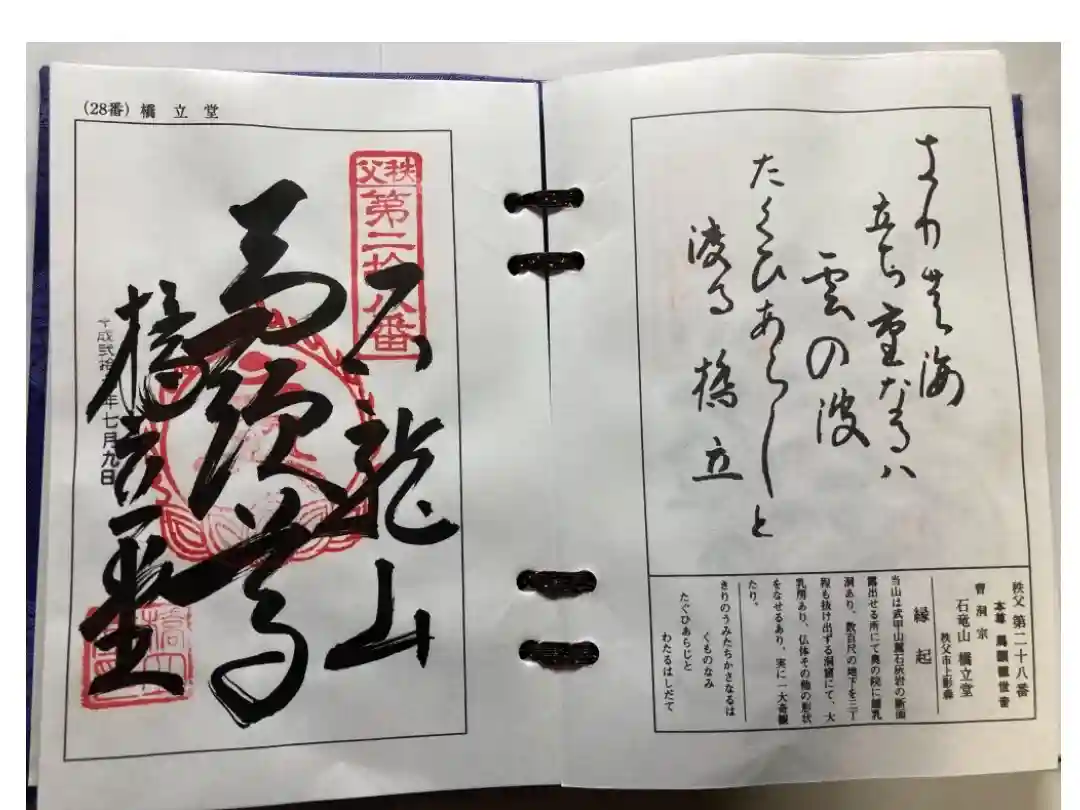 きり 海
立ち重なるハ
雲の波
たくひあらしと
渡る橋立
秩父 第二十八番
本尊 馬頭觀世音
曹洞宗
石竜山 橋立堂
秩父市上影森
縁起
当山は武甲山麓石灰岩の断面
露出せる所にて奥の院に鍾乳
洞あり、数百尺の地下を三丁
程も抜け出ずる洞窟にて、大
乳房あり、仏体その他の形状
をなせるあり、実に一大奇観
たり。
きりのうみたちかさなるは
くものなみ
たぐひあらじと
わたるはしだて
(28番) 橋立堂
秩父
第二拾八番
石龍山
馬頭尊
平成弐拾 年七月九日
橋立堂